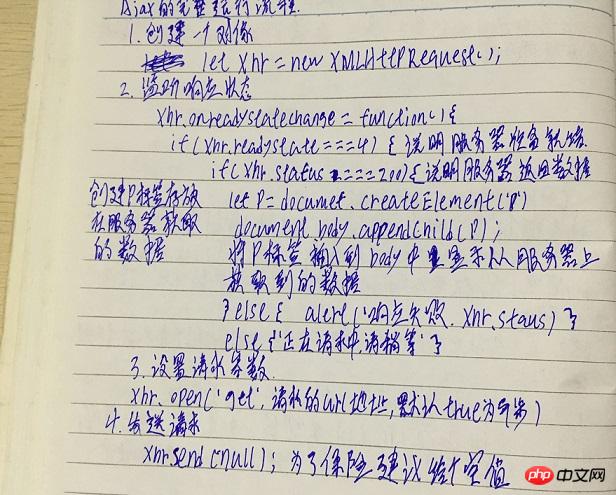 Ajax的完整运行流程.
1. 创建一个对像
let xhr = new XMLHttpRequest();
2. 监听响应状态
xhr.onreadystatechange = function(){
if(xhr.readystate ====4) { 说明服务器准备就绪
if(xhr.status ====200){ 说明服务器返回数据
创建P标签存放 let P= documet. createElement('P')
在服务器获取 document. body. appendChild(P);
的数据 将P标签插入到body中显示从服务器上
获取到的数据
}else{ alert('响应失败. xhr.staus) }
else {'正在请求中,请稍等' }
3. 设置请求参数
xhr. open('get', 请求的url地址, 默认true为异步)
4. 发送请求
xhr.send(null); 为了保险建议给个空值
php 中文网